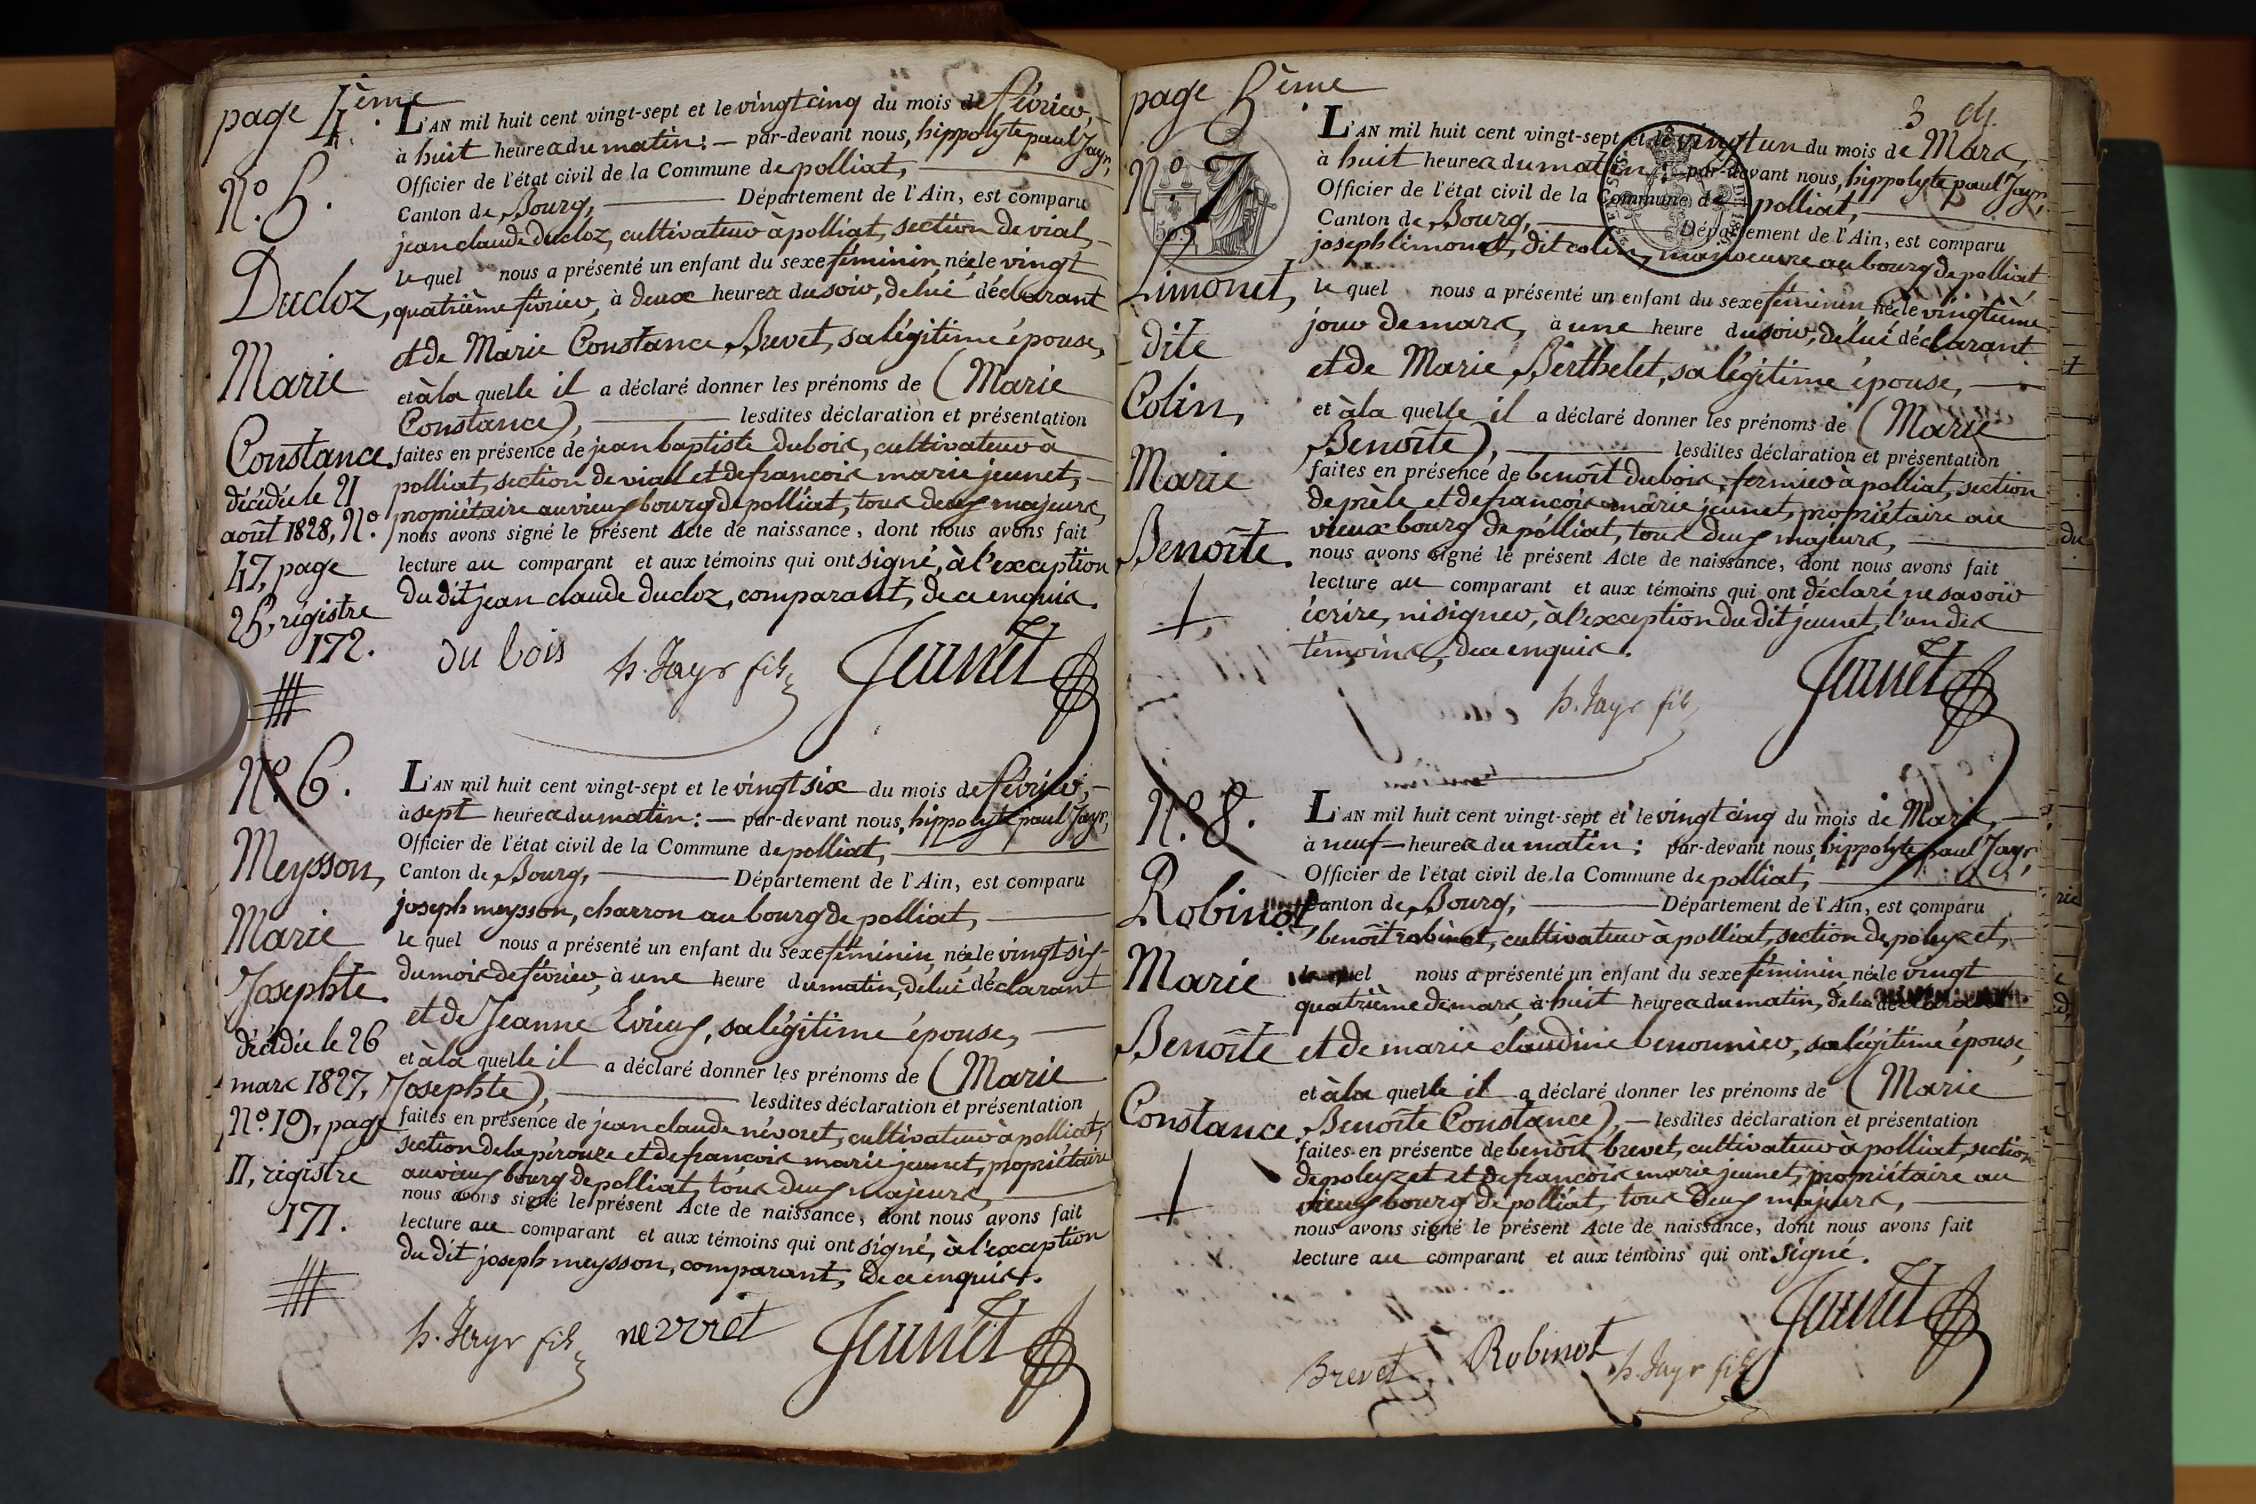 page 4ème
N.° 5.
Ducloz,
Marie
Constance.
décédée le 21
août 1828, N.°
47, page
25, régistre
172.
L'AN mil huit cent vingt-sept et le vingt cinq du mois de février,
à huit heures du matin: — par-devant nous, hippolyte paul Jayr,
Officier de l'état civil de la Commune de polliat,
Canton de Bourg, Département de l'Ain, est comparu
jean claude ducloz, cultivateur à polliat, section de vial,
le quel nous a présenté un enfant du sexe féminin, née le vingt
quatrième février, à deux heures du soir, de lui déclarant
et de Marie Constance Brevet, sa légitime épouse,
et à la quelle il a déclaré donner les prénoms de (Marie
Constance), lesdites déclaration et présentation
faites en présence de jean baptiste dubois, cultivateur à
polliat, section de vial et de francois marie jeunet,
propriétaire au vieux bourg de polliat, tous deux majeurs,
nous avons signé le présent Acte de naissance, dont nous avons fait
lecture au comparant et aux témoins qui ont signé, à l'exception
du dit jean claude ducloz, comparant, de ce enquis.
du bois h. Jayr fils Jeunet
N.° 6.
Meysson,
Marie
Josephte.
décédée le 26
mars 1827,
N.° 19, page
11, régistre
171.
L'AN mil huit cent vingt-sept et le vingt six du mois de février,
à sept heures du matin: — par-devant nous, hippolyte paul Jayr,
Officier de l'état civil de la Commune de polliat,
Canton de Bourg, Département de l'Ain, est comparu
joseph meysson, charron au bourg de polliat,
le quel nous a présenté un enfant du sexe féminin, née le vingt six
du mois de février, à une heure du matin, de lui déclarant
et de Jeanne Evieux, sa légitime épouse,
et à la quelle il a déclaré donner les prénoms de (Marie
Josephte), lesdites déclaration et présentation
faites en présence de jean claude névoret, cultivateur à polliat,
section de la pérouze et de francois marie jeunet, propriétaire
au vieux bourg de polliat, tous deux majeurs,
nous avons signé le présent Acte de naissance, dont nous avons fait
lecture au comparant et aux témoins qui ont signé, à l'exception
du dit joseph meysson, comparant, de ce enquis.
h. Jayr fils Jeunet
page 5ème
3
N.° 7.
Limonet,
dite
Colin,
Marie
Benoîte.
L'AN mil huit cent vingt-sept et le vingt un du mois de Mars,
à huit heures du matin: par-devant nous, hippolyte paul Jayr,
Officier de l'état civil de la Commune de polliat,
Canton de Bourg, Département de l'Ain, est comparu
joseph limonet, dit colin, manoeuvre au bourg de polliat
le quel nous a présenté un enfant du sexe féminin née le vingtième
jour de mars, à une heure du soir, de lui déclarant
et de Marie Berthelet, sa légitime épouse,
et à la quelle il a déclaré donner les prénoms de (Marie
Benoîte), lesdites déclaration et présentation
faites en présence de benoît dubois, fermier à polliat, section
de prèle et de francois marie jeunet, propriétaire au
vieux bourg de polliat, tous deux majeurs,
nous avons signé le présent Acte de naissance, dont nous avons fait
lecture au comparant et aux témoins qui ont déclaré ne savoir
écrire, ni signer, à l'exception du dit jeunet, l'un des
témoins, de ce enquis.
h. Jayr fils Jeunet
N.° 8.
Robinot,
Marie
Benoîte
Constance.
L'AN mil huit cent vingt-sept et le vingt cinq du mois de Mars,
à neuf heures du matin: par-devant nous, hippolyte paul Jayr,
Officier de l'état civil de la Commune de polliat,
Canton de Bourg, Département de l'Ain, est comparu
benoît robinot, cultivateur à polliat, section de poleyzet,
le quel nous a présenté un enfant du sexe féminin, née le vingt
quatrième de mars, à huit heures du matin, de lui déclarant
et de marie claudine benonnier, sa légitime épouse,
et à la quelle il a déclaré donner les prénoms de (Marie
Benoîte Constance), — lesdites déclaration et présentation
faites en présence de benoît brevet, cultivateur à polliat, section
de poleyzet et de francois marie jeunet, propriétaire au
vieux bourg de polliat, tous deux majeurs,
nous avons signé le présent Acte de naissance, dont nous avons fait
lecture au comparant et aux témoins qui ont signé.
Jeunet
Brevet Robinot h. Jayr fils